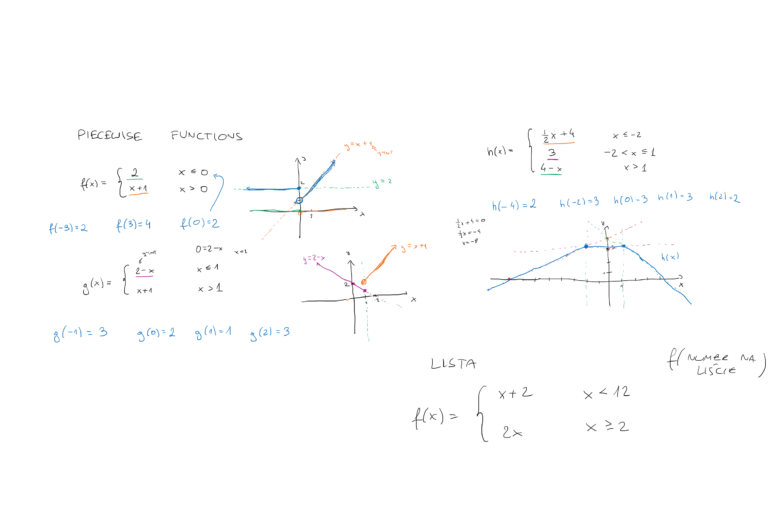 PIECEWISE FUNCTIONS
f(x) = { 2 x ≤ 0
x+1 x > 0
f(-3)=2 f(3)=4 f(0)=2
y=x+1
y=2
2
1
x
0=2-x x=2
g(x) = { 2-x x ≤ 1
x+1 x > 1
g(-1) = 3 g(0)=2 g(1)=1 g(2)=3
y=2-x
y=x+1
2
1
x
h(x) = { ½x+4 x ≤ -2
3 -2 < x ≤ 1
4-x x > 1
h(-4)=2 h(-2)=3 h(0)=3 h(1)=3 h(2)=2
½x+4=0
½x=-4
x=-8
h(x)
x
LISTA
f(NUMER NA LIŚCIE)
f(x) = { x+2 x < 12
2x x ≥ 2